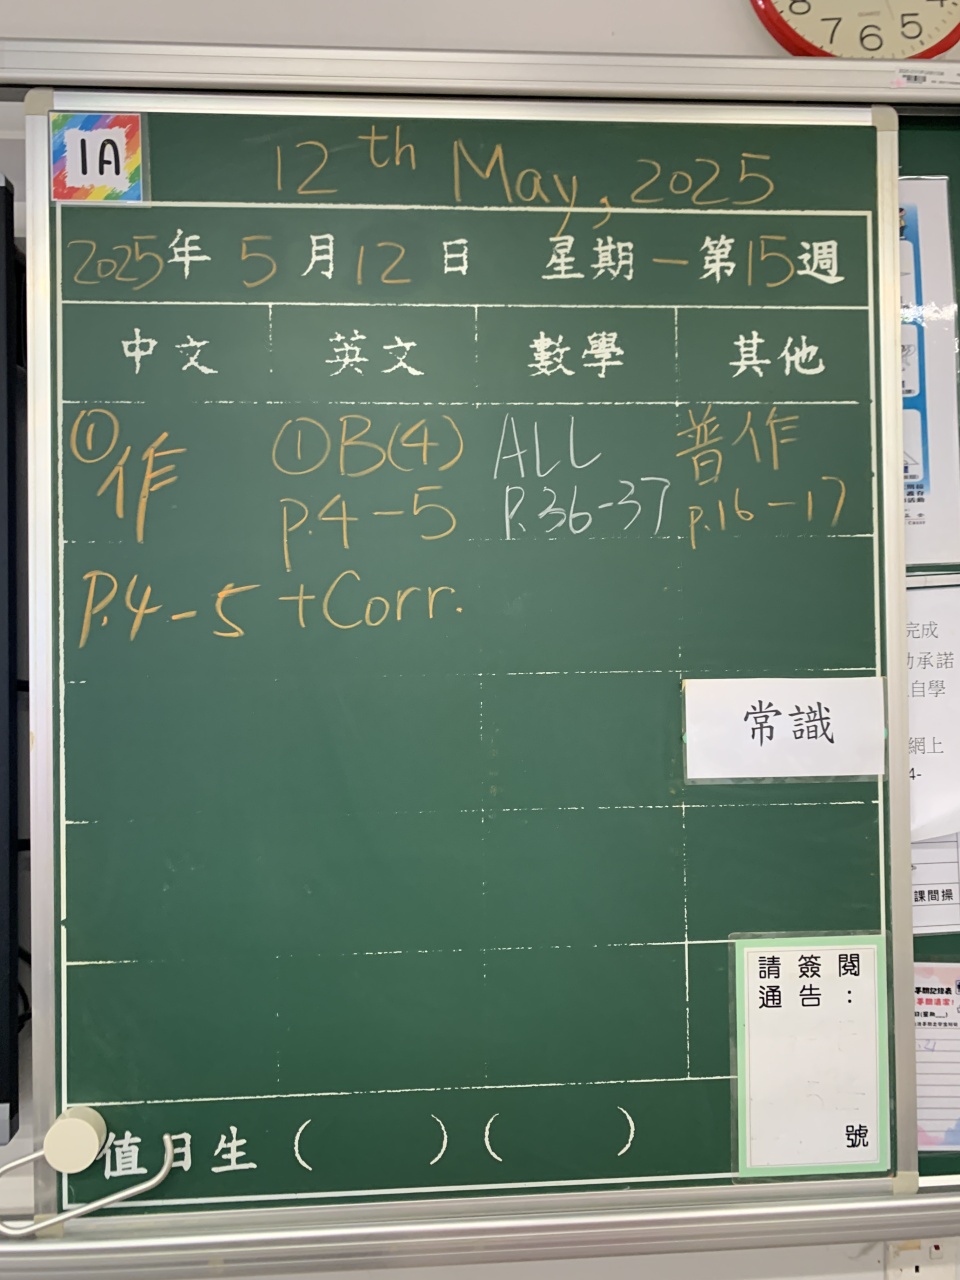 8 7 6 5 4
1A
12th May, 2025
2025年 5月12日 星期一第15週
中文 英文 數學 其他
① 作 ①B(4) ALL 普作
p.4-5 P.36-37 p.16-17
P.4-5 +Corr.
常識
請簽閱
通告：
號
值日生 ( ) ( )
完成
承諾
自學
網上
4-
課間操